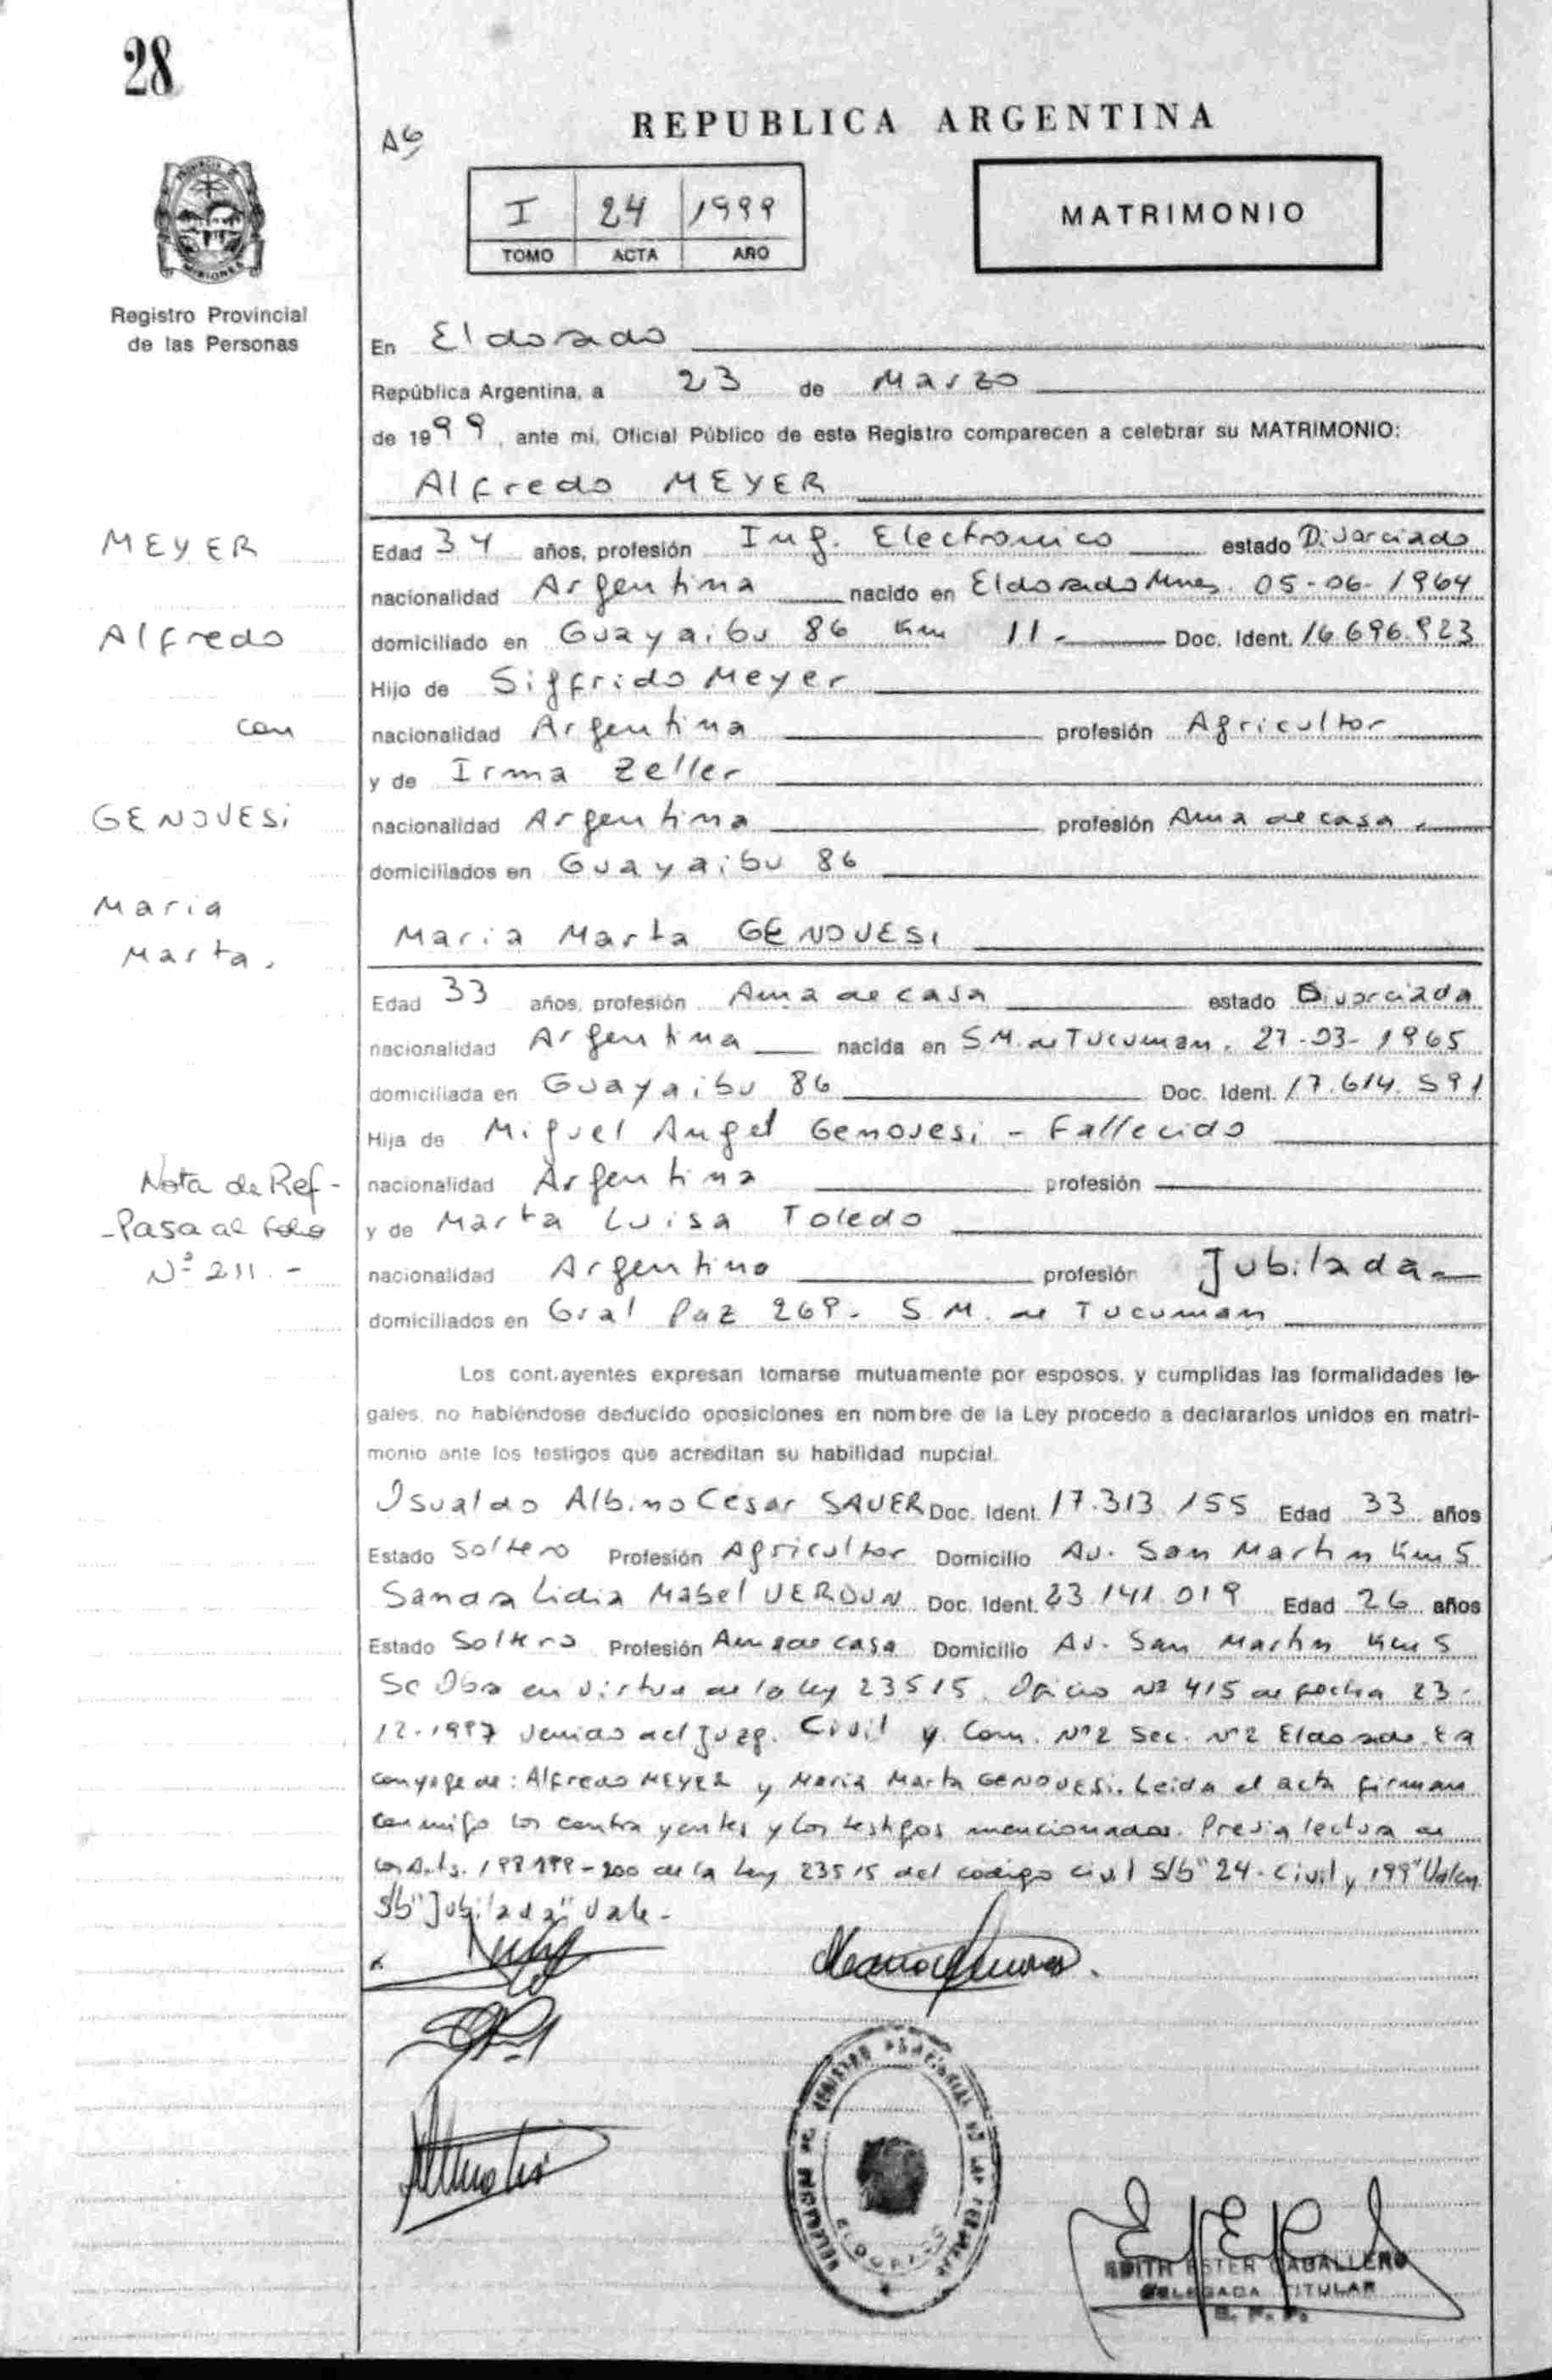 28
A6
REPUBLICA ARGENTINA
I 24 1999
TOMO ACTA AÑO
MATRIMONIO
PROVINCIA DE MISIONES
Registro Provincial
de las Personas
En Eldorado
República Argentina, a 23 de Marzo
de 1999, ante mi, Oficial Público de este Registro comparecen a celebrar su MATRIMONIO:
Alfredo MEYER
MEYER
Alfredo
con
GENOVESi
Maria
Marta.
Edad 34 años, profesión Ing. Electronico estado Divorciado
nacionalidad Argentina nacido en Eldorado Mnes. 05-06-1964
domiciliado en Guayaibu 86 Km 11.- Doc. Ident. 16.696.923
Hijo de Sigfrido Meyer
nacionalidad Argentina profesión Agricultor
y de Irma Zeller
nacionalidad Argentina profesión Ama de casa.
domiciliados en Guayaibu 86
Maria Marta GENOVESI
Edad 33 años, profesión Ama de casa estado Divorciada
nacionalidad Argentina nacida en S.M. de Tucuman. 27-03-1965
domiciliada en Guayaibu 86 Doc. Ident. 17.614.591
Hija de Miguel Angel Genovesi - Fallecido
nacionalidad Argentina profesión
y de Marta Luisa Toledo
nacionalidad Argentina profesión Jubilada.
domiciliados en Gral Paz 269. S.M. de Tucuman
Nota de Ref-
-Pasa al folio
Nº 211.-
Los contrayentes expresan tomarse mutuamente por esposos, y cumplidas las formalidades le-
gales, no habiéndose deducido oposiciones en nombre de la Ley procedo a declararlos unidos en matri-
monio ante los testigos que acreditan su habilidad nupcial.
Osvaldo Albino Cesar SAUER Doc. Ident. 17.313.155 Edad 33 años
Estado Soltero Profesión Agricultor Domicilio Av. San Martin Km 5
Sandra Lidia Mabel VERDUN Doc. Ident. 23.141.019 Edad 26 años
Estado Soltera Profesión Ama de casa Domicilio Av. San Martin Km 5
Se Obra en virtud de la ley 23515. Oficio Nº 415 de fecha 23-
12-1997 venido del Juzg. Civil y Com. Nº2 Sec. Nº2 Eldorado. Ex
conyuge de: Alfredo MEYER y Maria Marta GENOVESi. Leida el acta firman
conmigo los contrayentes y los testigos mencionados. Previa lectura de
los Arts. 198 199-200 de la Ley 23515 del codigo civil S/b "24-Civil y 199" Valen
S/b "Jubilada" Vale-
REGISTRO PROVINCIAL DE LAS PERSONAS
ELDORADO
EDITH ESTER CABALLERO
DELEGADA TITULAR